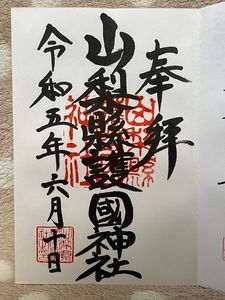 奉拝
山梨縣護國神社
令和五年六月十日